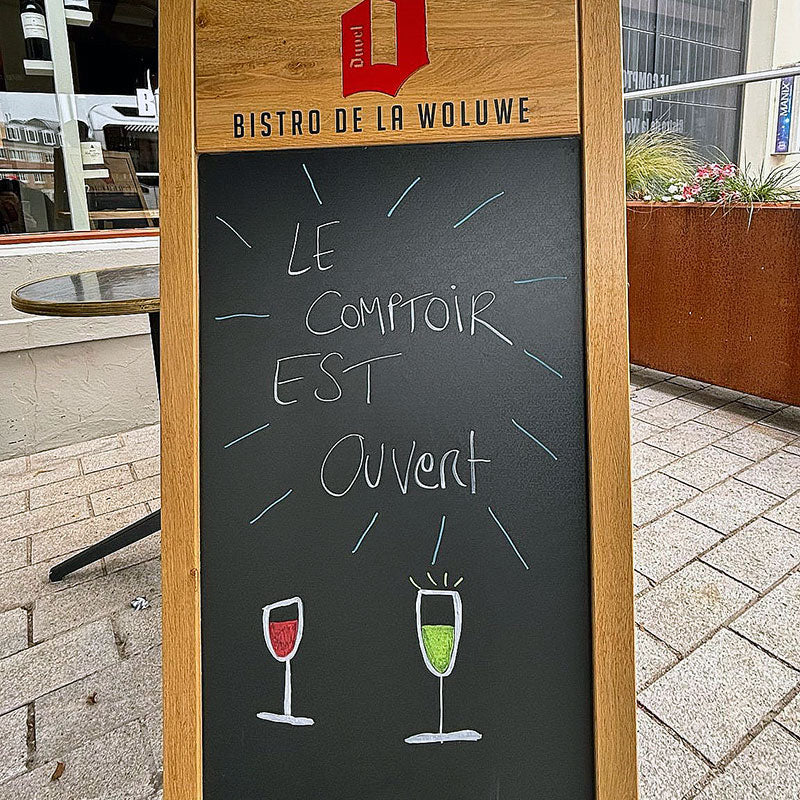 Duvel
BISTRO DE LA WOLUWE
LE
COMPTOIR
EST
OUVERT
LE COMPTO
MANIX